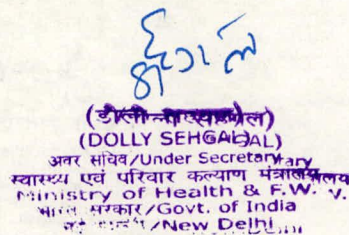 (DOLLY SEHGAL)
अवर सचिव/Under Secretary
स्वास्थ्य एवं परिवार कल्याण मंत्रालय
Ministry of Health & F.W.
भारत सरकार/Govt. of India
/New Delhi